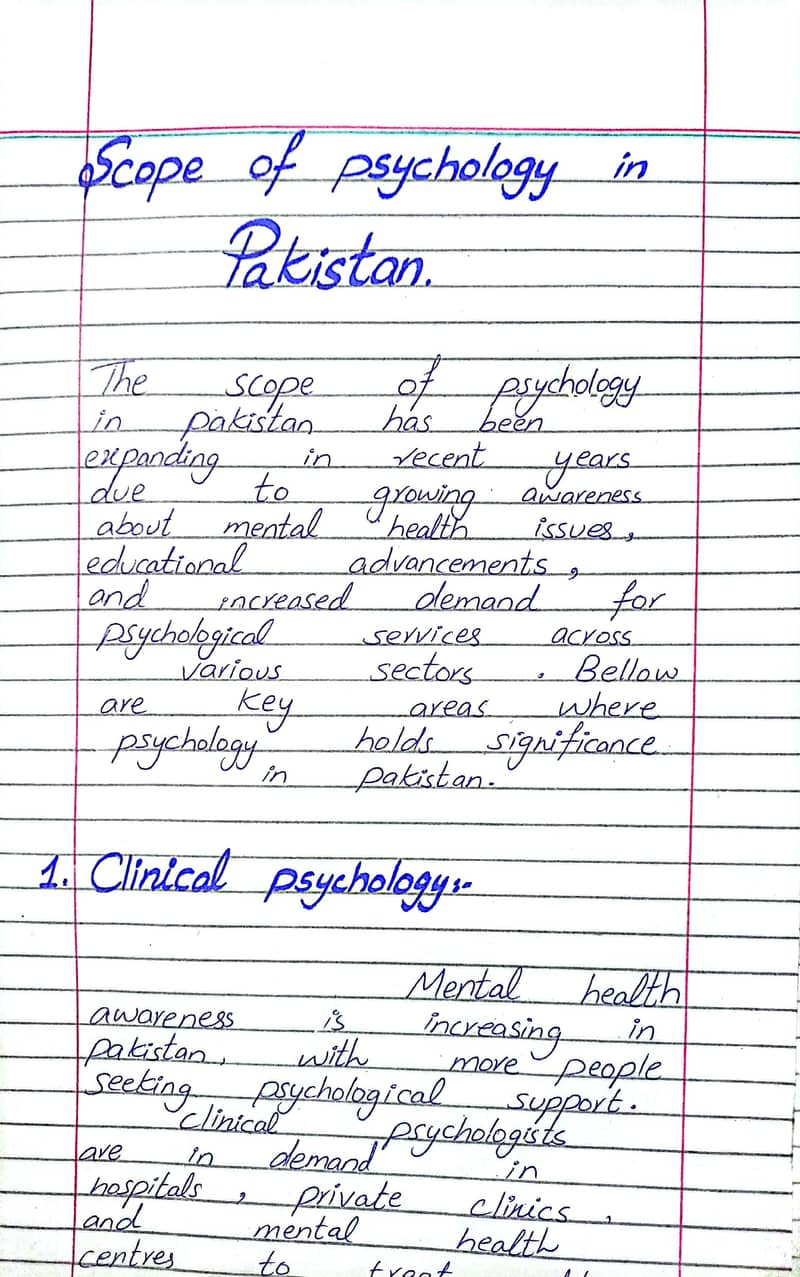 Scope of psychology in
Pakistan.
The scope of psychology
in pakistan has been
expanding in recent years
due to growing awareness
about mental health issues,
educational advancements,
and increased demand for
psychological services across
various sectors. Bellow
are key areas where
psychology holds significance
in pakistan.
1. Clinical psychology:-
Mental health
awareness is increasing in
pakistan, with more people
seeking psychological support.
Clinical psychologists
are in demand in
hospitals, private clinics,
and mental health
centres to treat